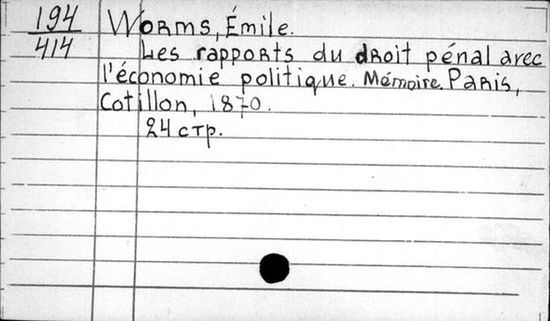 194
414
Worms, Émile.
Les rapports du droit pénal avec
l'économie politique. Mémoire. Paris,
Cotillon, 1870.
24 стр.